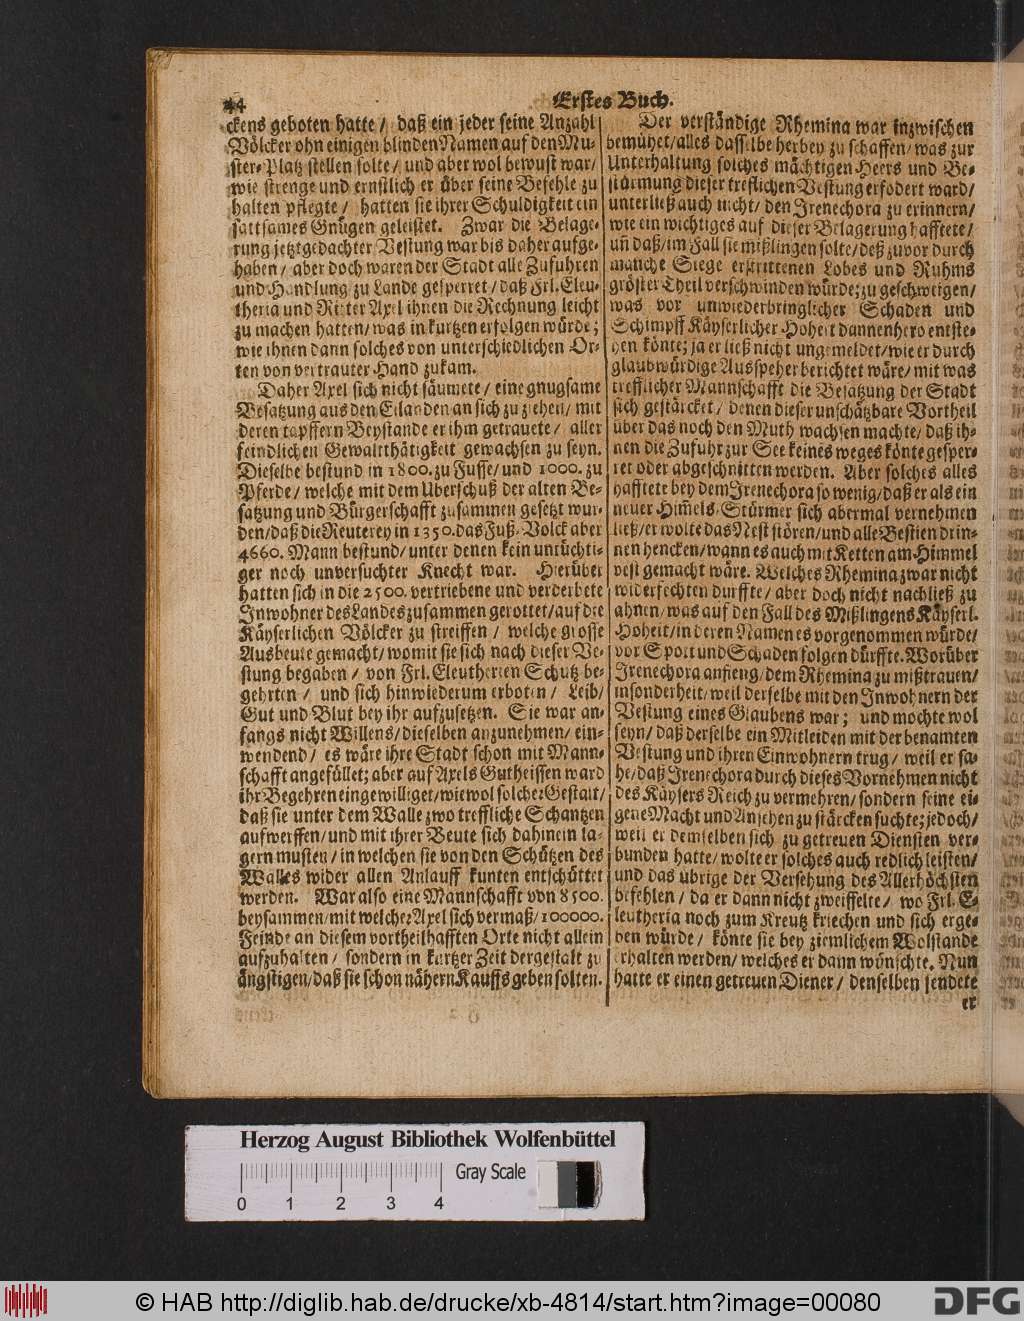 44
Erstes Buch.
ckens geboten hatte / daß ein jeder seine Anzahl
Völcker ohn einigen blinden Namen auf den Mu-
ster-Platz stellen solte / und aber wol bewust war /
wie strenge und ernstlich er über seine Befehle zu
halten pflegte / hatten sie ihrer Schuldigkeit ein
sattsames Gnügen geleistet. Zwar die Belage-
rung jetztgedachter Vestung war bis daher aufge-
haben / aber doch waren der Stadt alle Zufuhren
und Handlung zu Lande gesperret / daß Frl. Eleu-
theria und Ritter Axel ihnen die Rechnung leicht
zu machen hatten / was in kurtzen erfolgen würde ;
wie ihnen dann solches von unterschiedlichen Or-
ten von vertrauter Hand zukam.
Daher Axel sich nicht säumete / eine gnugsame
Besatzung aus den Eilanden an sich zu ziehen / mit
deren tapffern Beystande er ihm getrauete / aller
feindlichen Gewaltthätigkeit gewachsen zu seyn.
Dieselbe bestund in 1800. zu Fusse / und 1000. zu
Pferde / welche mit dem Uberschuß der alten Be-
satzung und Bürgerschafft zusammen gesetzt wur-
den / daß die Reuterey in 1350. das Fuß-Volck aber
4660. Mann bestund / unter denen kein untüchti-
ger noch unversuchter Knecht war. Hierüber
hatten sich in die 2500. vertriebene und verderbete
Inwohner des Landes zusammen gerottet / auf die
Käyserlichen Völcker zu streiffen / welche grosse
Ausbeute gemacht / womit sie sich nach dieser Ve-
stung begaben / von Frl. Eleutherien Schutz be-
gehrten / und sich hinwiederum erboten / Leib /
Gut und Blut bey ihr aufzusetzen. Sie war an-
fangs nicht Willens / dieselben anzunehmen / ein-
wendend / es wäre ihre Stadt schon mit Mann-
schafft angefüllet ; aber auf Axels Gutheissen ward
ihr Begehren eingewilliget / wiewol solcher Gestalt /
daß sie unter dem Walle zwo treffliche Schantzen
aufwerffen / und mit ihrer Beute sich dahinein la-
gern musten / in welchen sie von den Schützen des
Walles wider allen Anlauff kunten entschüttet
werden. War also eine Mannschafft von 8500.
beysammen / mit welcher Axel sich vermaß / 100000.
Feinde an diesem vortheilhafften Orte nicht allein
aufzuhalten / sondern in kurtzer Zeit dergestalt zu
ängstigen / daß sie schon nähern Kauffs geben solten.
Der verständige Rhemina war inzwischen
bemühet / alles dasselbe herbey zu schaffen / was zur
Unterhaltung solches mächtigen Heers und Be-
stürmung dieser treflichen Vestung erfodert ward /
unterließ auch nicht / den Irenechora zu erinnern /
wie ein wichtiges auf dieser Belagerung hafftete /
uñ daß / im Fall sie mißlingen solte / deß zuvor durch
manche Siege erstrittenen Lobes und Ruhms
gröster Theil verschwinden würde ; zu geschweigen /
was vor unwiederbringlicher Schaden und
Schimpff Käyserlicher Hoheit dannenhero entste-
hen könte ; ja er ließ nicht ungemeldet / wie er durch
glaubwürdige Ausspeher berichtet wäre / mit was
trefflicher Mannschafft die Besatzung der Stadt
sich gestärcket / denen dieser unschätzbare Vortheil
über das noch den Muth wachsen machte / daß ih-
nen die Zufuhr zur See keines weges könte gesper-
ret oder abgeschnitten werden. Aber solches alles
hafftete bey dem Irenechora so wenig / daß er als ein
neuer Himels-Stürmer sich abermal vernehmen
ließ / er wolte das Nest stören / und alle Bestien drin-
nen hencken / wann es auch mit Ketten am Himmel
vest gemacht wäre. Welches Rhemina zwar nicht
widerfechten durffte / aber doch nicht nachließ zu
ahnen / was auf den Fall des Mißlingens Käyserl.
Hoheit / in deren Namen es vorgenommen würde /
vor Spott und Schaden folgen dürffte. Worüber
Irenechora anfieng / dem Rhemina zu mißtrauen /
insonderheit / weil derselbe mit den Inwohnern der
Vestung eines Glaubens war ; und mochte wol
seyn / daß derselbe ein Mitleiden mit der benamten
Vestung und ihren Einwohnern trug / weil er sa-
he / daß Irenechora durch dieses Vornehmen nicht
des Käysers Reich zu vermehren / sondern seine ei-
gene Macht und Ansehen zu stärcken suchte ; jedoch /
weil er demselben sich zu getreuen Diensten ver-
bunden hatte / wolte er solches auch redlich leisten /
und das übrige der Versehung des Allerhöchsten
befehlen / da er dann nicht zweiffelte / wo Frl. E-
leutheria noch zum Kreutz kriechen und sich erge-
ben würde / könte sie bey ziemlichem Wolstande
erhalten werden / welches er dann wünschte. Nun
hatte er einen getreuen Diener / denselben sendete
er
Herzog August Bibliothek Wolfenbüttel
Gray Scale
0 1 2 3 4
© HAB http://diglib.hab.de/drucke/xb-4814/start.htm?image=00080
DFG